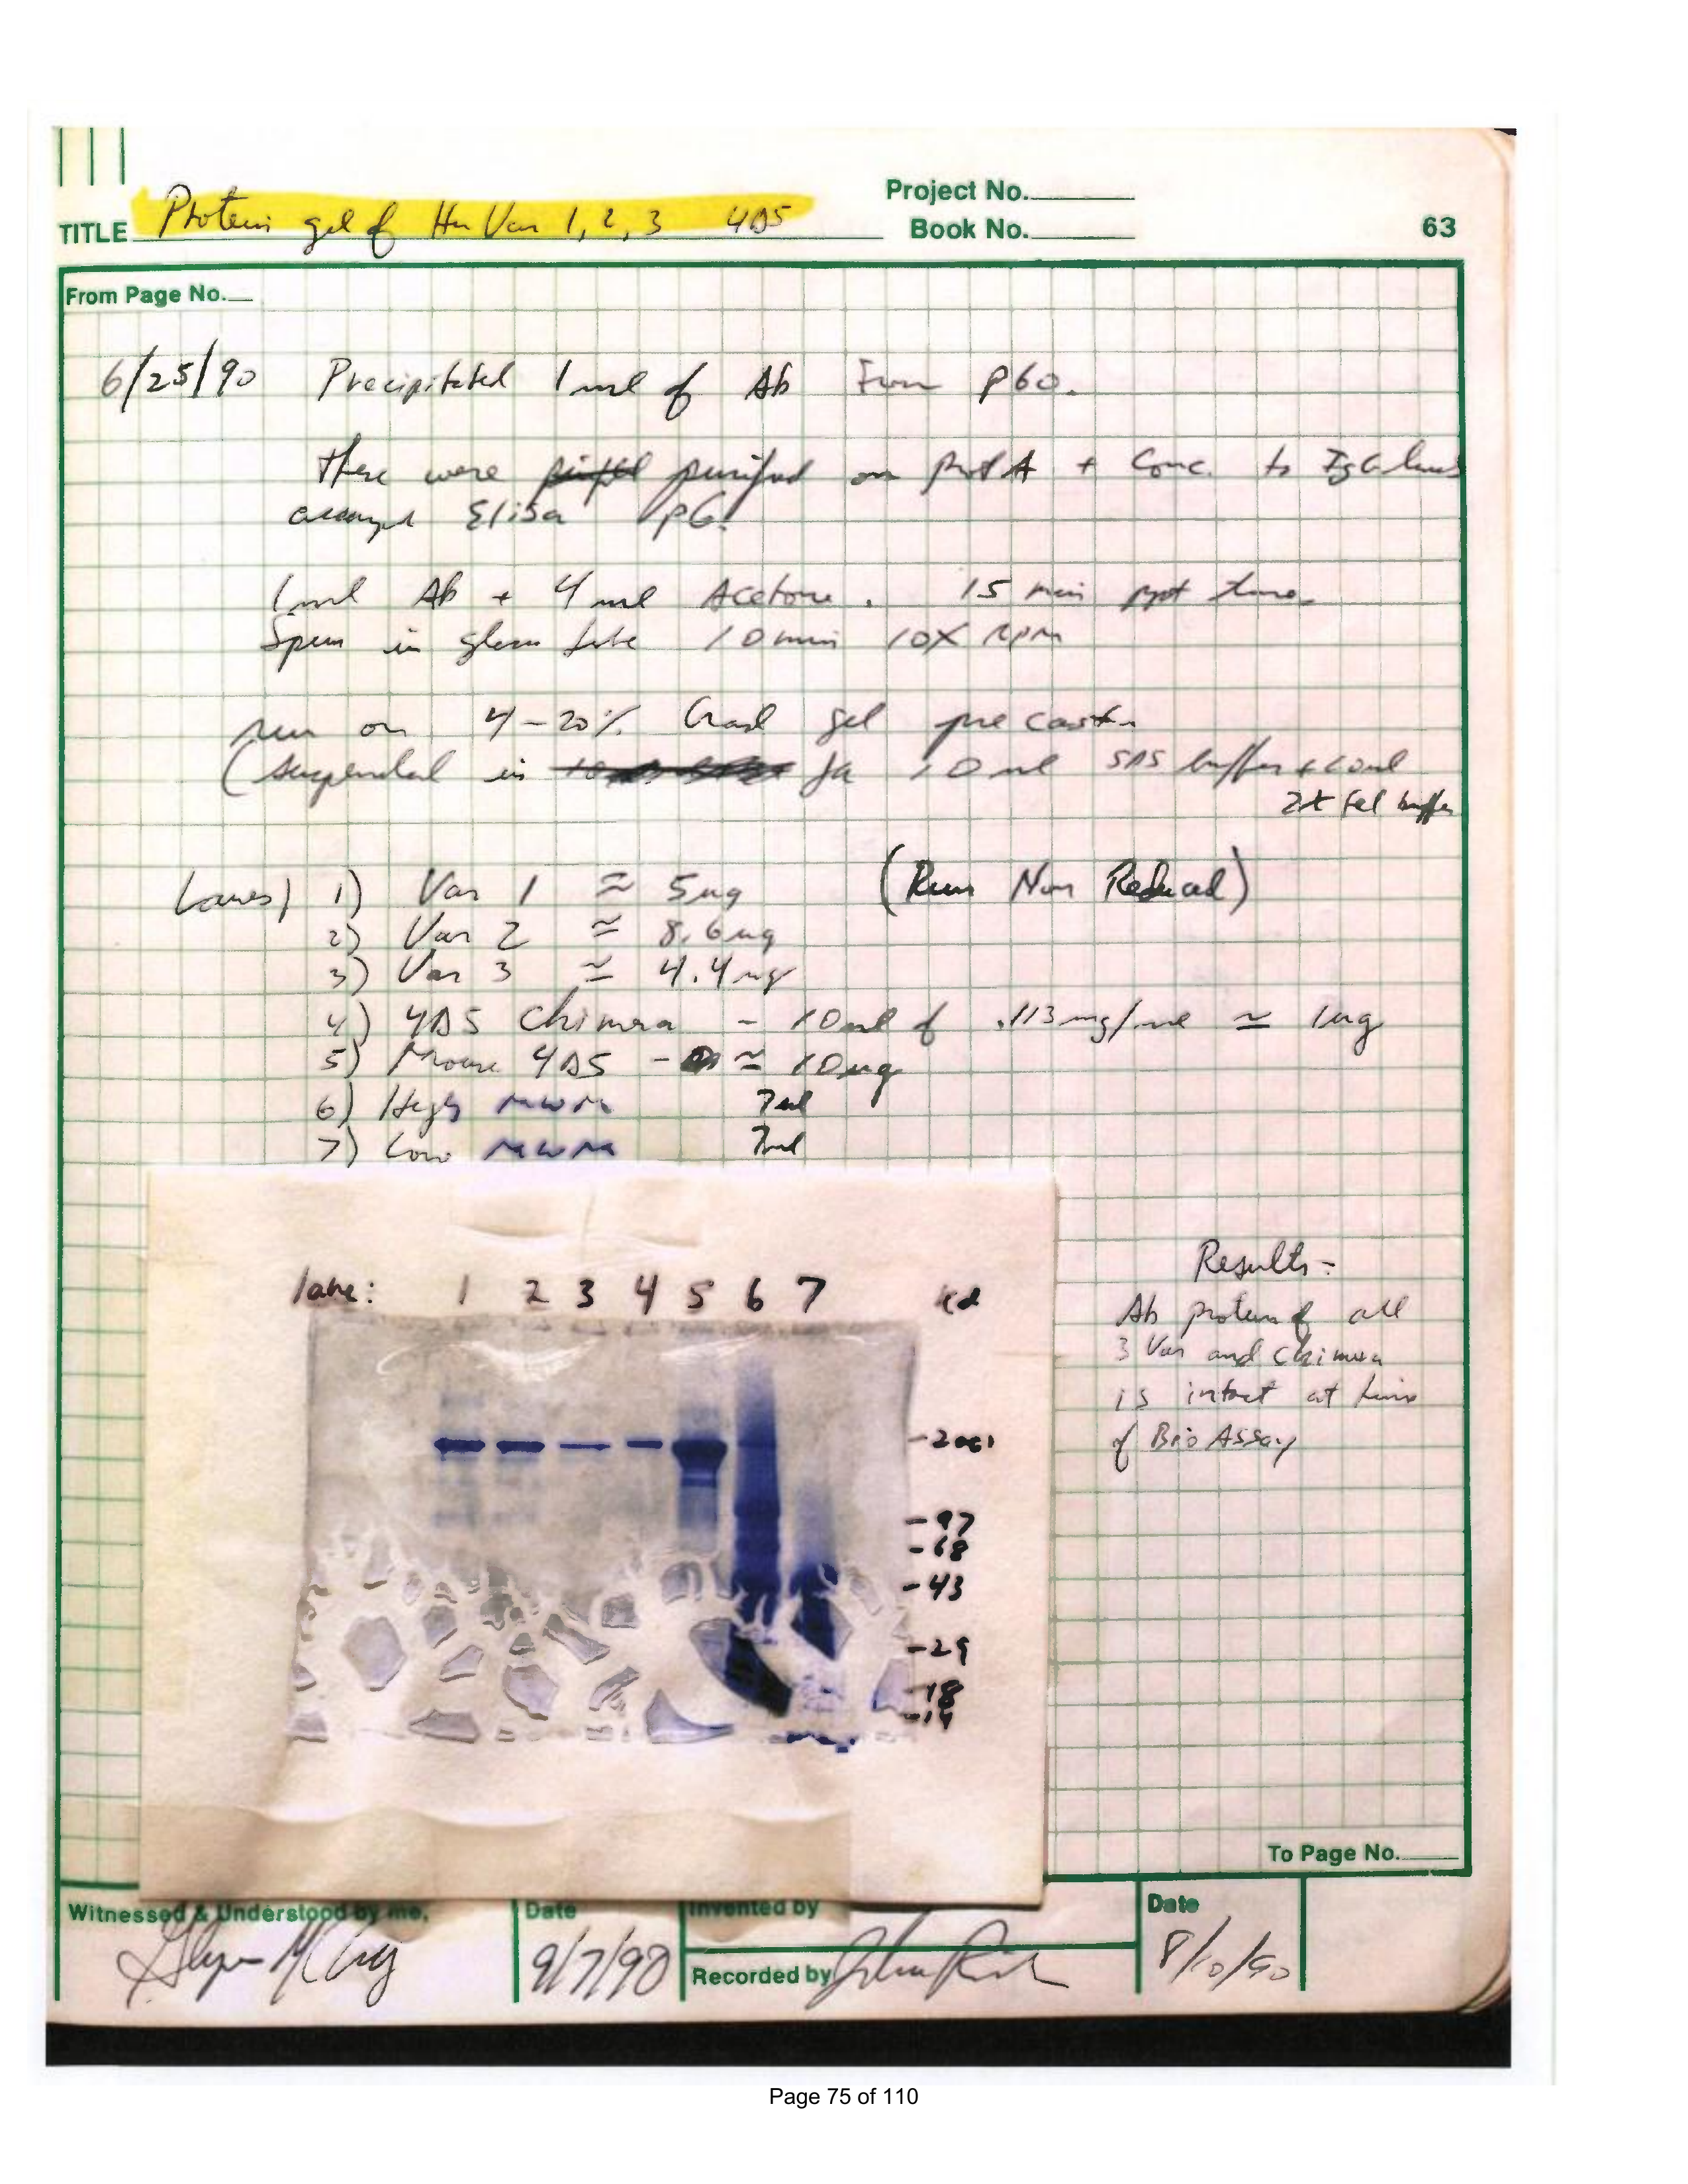 Project No.
TITLE Protein gel of Hu Var 1, 2, 3 4D5
Book No. 63
From Page No.
6/25/90 Precipitated 1 ml of Ab From p60.
these were purified on prot A + Conc. to IgG
Elisa p6
1 ml Ab + 4 ml Acetone. 15 min ppt time
Spun in glass tube 10 min 10K RPM
run on 4-20% Grad gel precast
(suspended in 10 ul SDS buffer + 10 ul
2x gel buffer
Lanes) 1) Var 1 ≈ 5ug (Run Non Reduced)
2) Var 2 ≈ 8.6ug
3) Var 3 ≈ 4.4ug
4) 4D5 Chimera - 10ul of .113mg/ml ≈ 1ug
5) Mouse 4D5 - ≈ 10ug
6) High MWM 7ul
7) Low MWM 7ul
lane: 1 2 3 4 5 6 7 kd
-200
-97
-68
-43
-29
-18
-14
Results-
Ab protein of all
3 Var and Chimera
is intact at time
of Bio Assay
To Page No.
Witnessed & Understood by me,
Date
9/7/90
Invented by
Recorded by
Date
8/10/90
Page 75 of 110